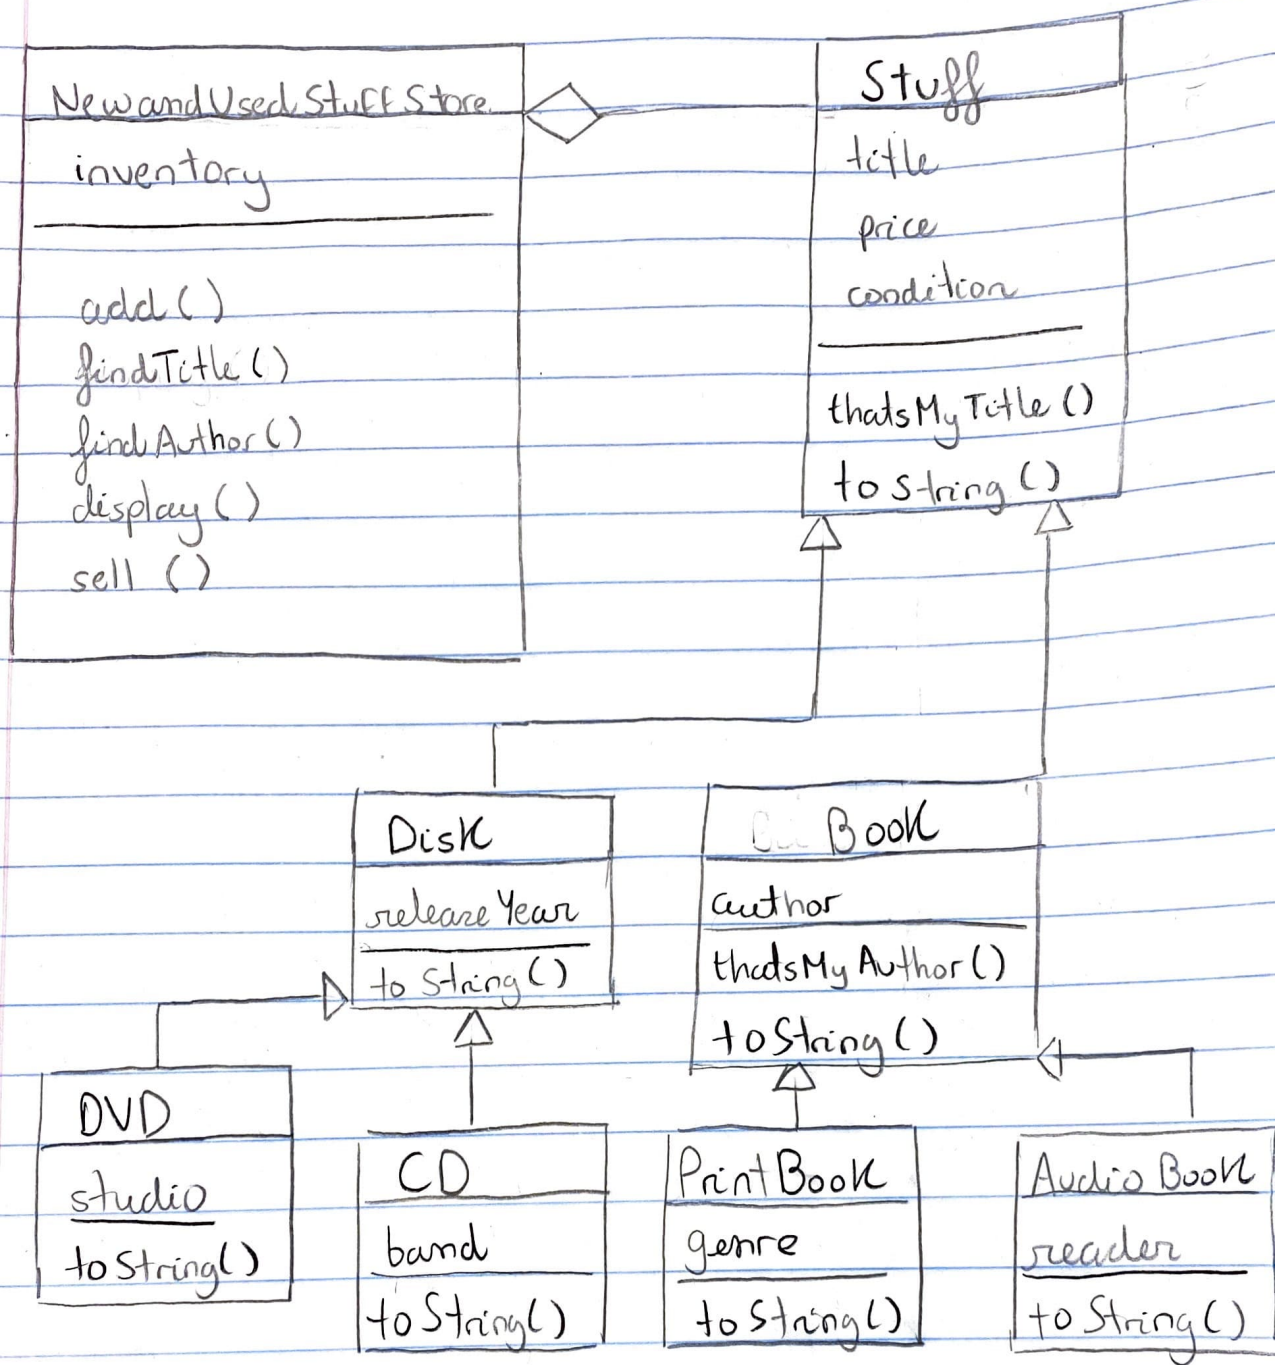 NewandUsedStuffStore
inventory
add()
findTitle()
findAuthor()
display()
sell ()
Stuff
title
price
condition
thatsMyTitle()
toString()
Disk
releaseYear
toString()
Book
author
thatsMyAuthor()
toString()
DVD
studio
toString()
CD
band
toString()
PrintBook
genre
toString()
AudioBook
reader
toString()